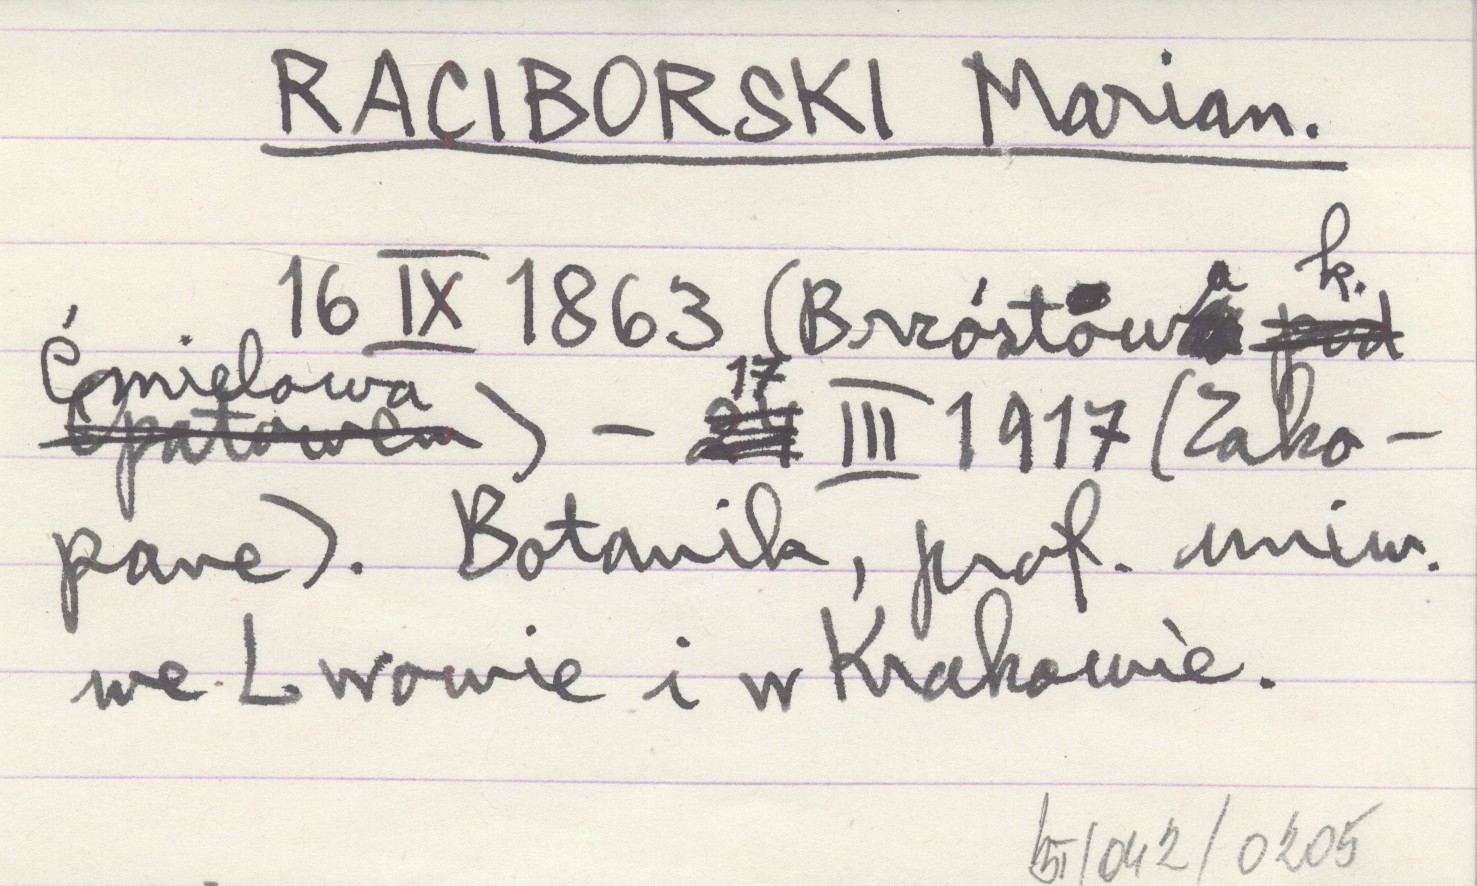 RACIBORSKI Marian.
16 IX 1863 (Brzóstowa k.
Ćmielowa) – 17 III 1917 (Zako-
pane). Botanik, prof. uniw.
we Lwowie i w Krakowie.
/042/0205